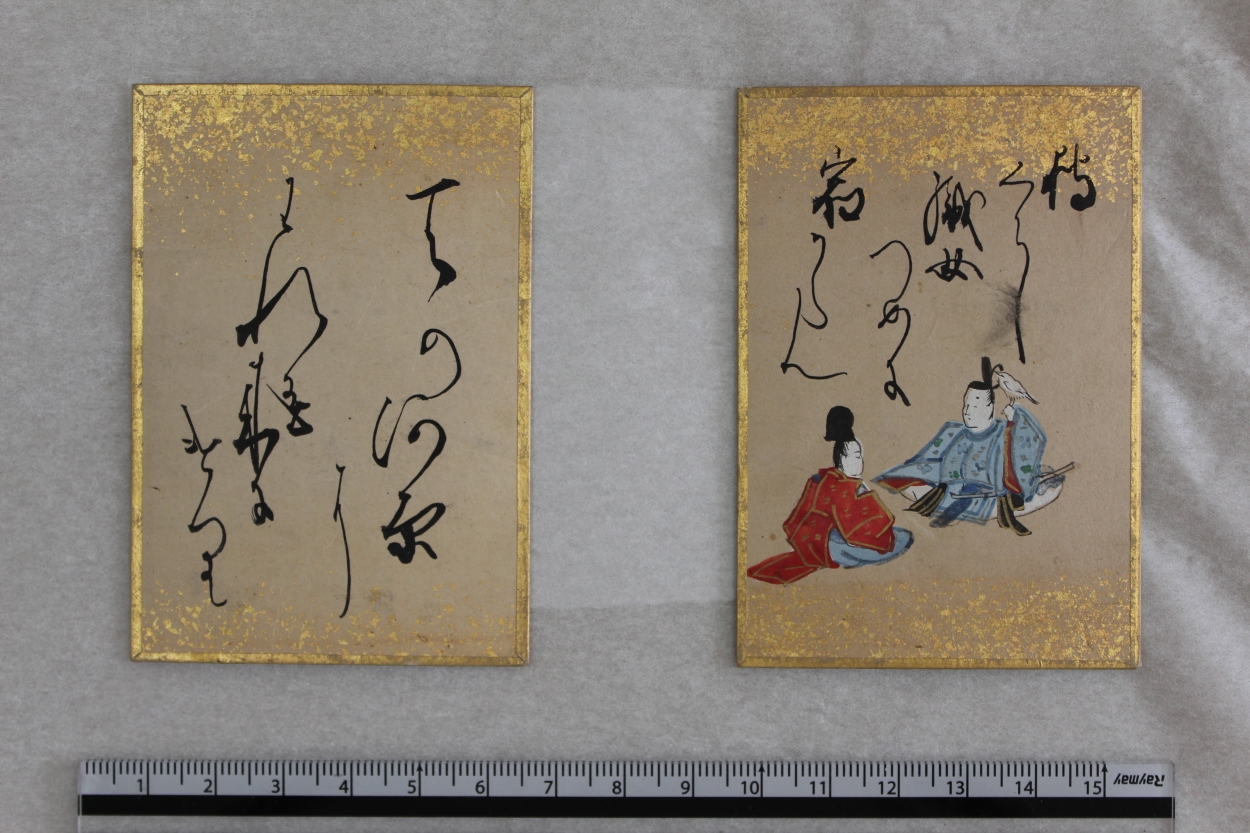 狩
くらし
織女
つめに
宿
からん
天の河原
に
われは
来に
けり
1 2 3 4 5 6 7 8 9 10 11 12 13 14 15 Raymay